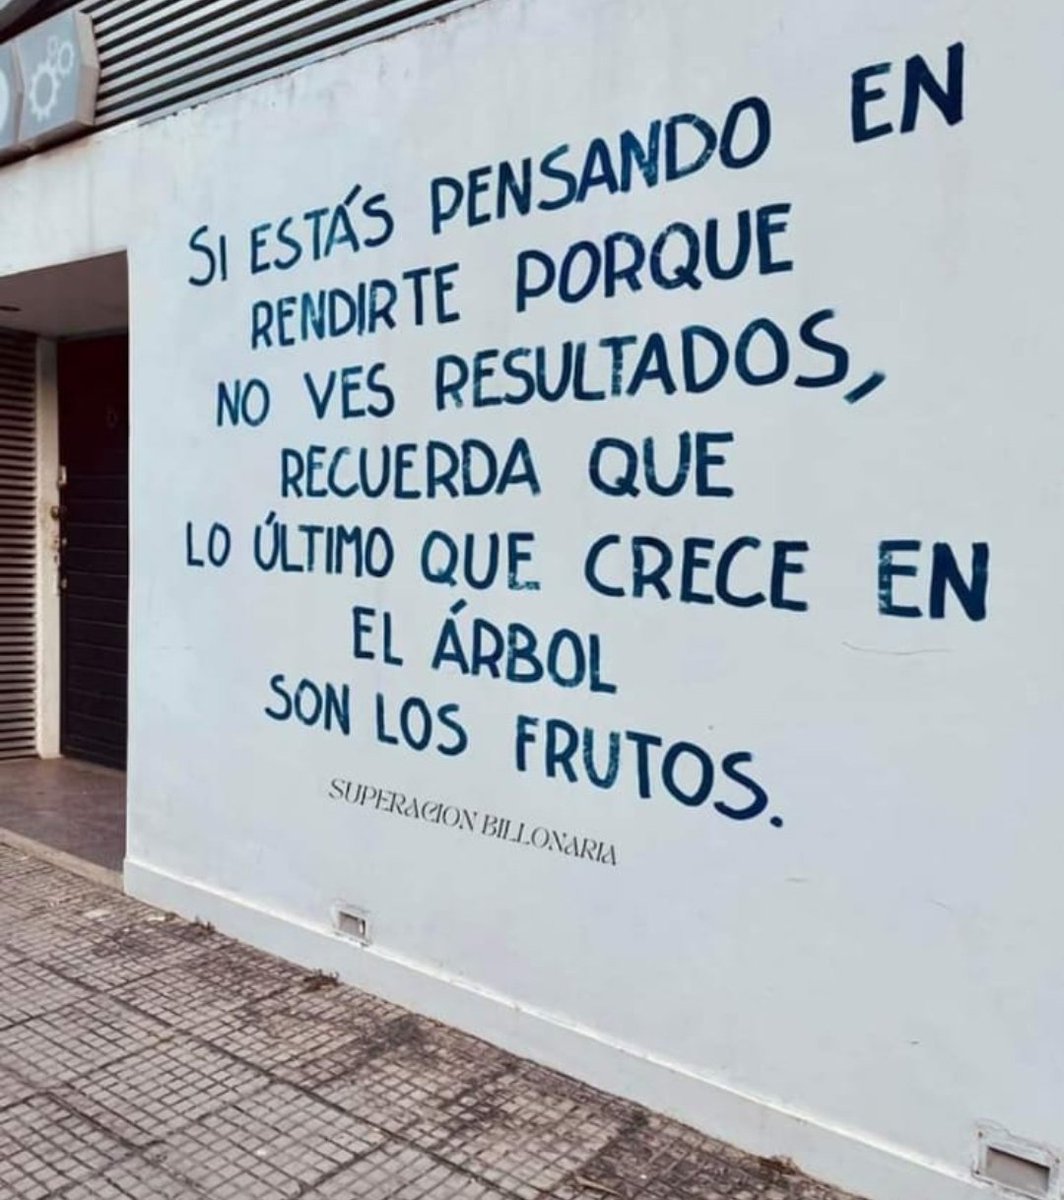 SI ESTÁS PENSANDO EN
RENDIRTE PORQUE
NO VES RESULTADOS,
RECUERDA QUE
LO ÚLTIMO QUE CRECE EN
EL ÁRBOL
SON LOS FRUTOS.
SUPERACION BILLONARIA